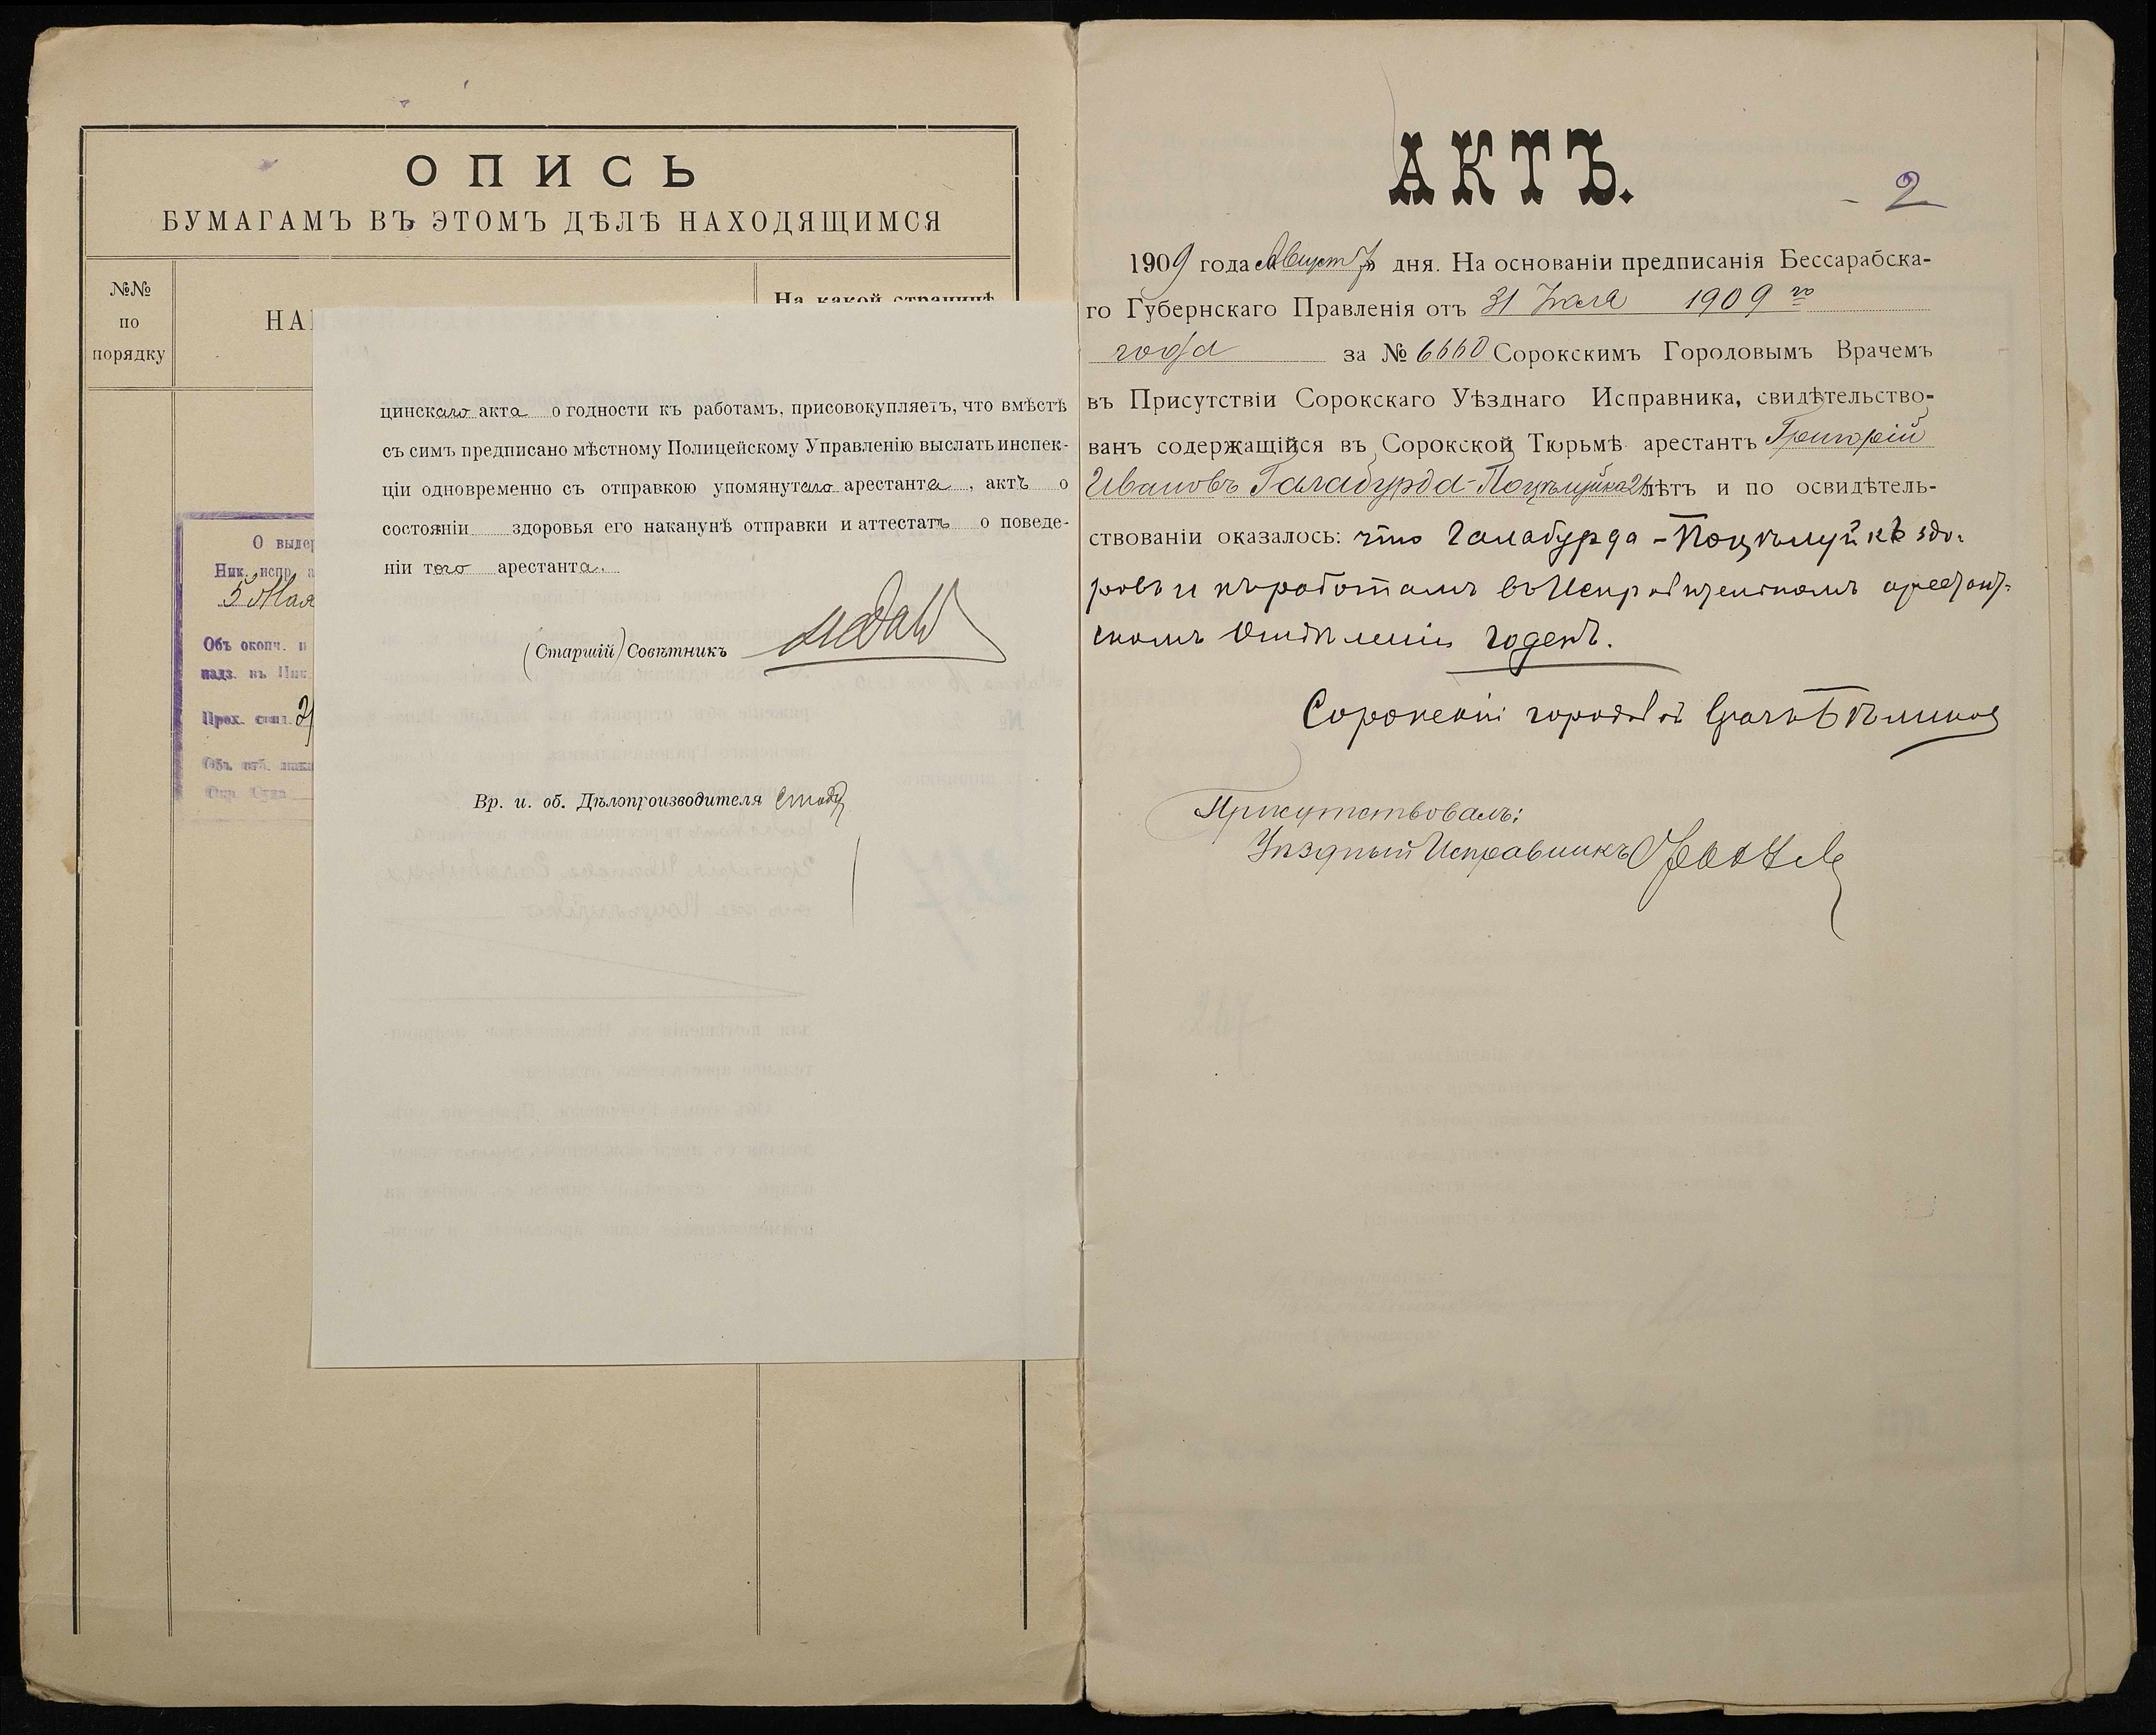 ОПИСЬ
БУМАГАМЪ ВЪ ЭТОМЪ ДѢЛѢ НАХОДЯЩИМСЯ
№№
по
порядку
НАИ
На какой страницѣ
О выдер
Ник. испр. а
5 Мая
Объ оконч. н
надз. въ Ник.
Прох. спис.
цинскаго акта о годности къ работамъ, присовокупляетъ, что вмѣстѣ
съ симъ предписано мѣстному Полицейскому Управленію выслать инспек-
ціи одновременно съ отправкою упомянутаго арестанта, актъ о
состояніи здоровья его наканунѣ отправки и аттестатъ о поведе-
ніи того арестанта.
(Старшій) Совѣтникъ
Вр. и. об. Дѣлопроизводителя
АКТЪ.
2
1909 года Август 7 дня. На основаніи предписанія Бессарабска-
го Губернскаго Правленія отъ 31 Іюля 1909 го
года за № 6660 Сорокскимъ Городовымъ Врачемъ
въ Присутствіи Сорокскаго Уѣзднаго Исправника, свидѣтельство-
ванъ содержащійся въ Сорокской Тюрьмѣ арестантъ Григорій
Ивановъ Галабурда-Поцѣлуйко 21 лѣтъ и по освидѣтель-
ствованіи оказалось: что Галабурда-Поцѣлуйкъ здо-
ровъ и къ работамъ въ Исправительномъ арестант-
скомъ Отдѣленіи годенъ.
Сорокскій городовой врачъ
Присутствовалъ:
Уѣздный Исправникъ